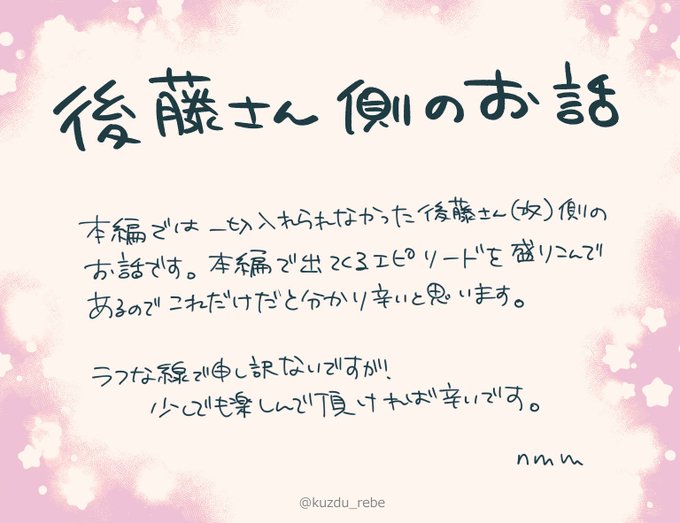 後藤さん側のお話
本編では一切入れられなかった後藤さん(攻)側の
お話です。本編で出てくるエピソードを盛りこんで
あるのでこれだけだと分かり辛いと思います。
ラフな線で申し訳ないですが!
少しでも楽しんで頂ければ幸いです。
nmm
@kuzdu_rebe